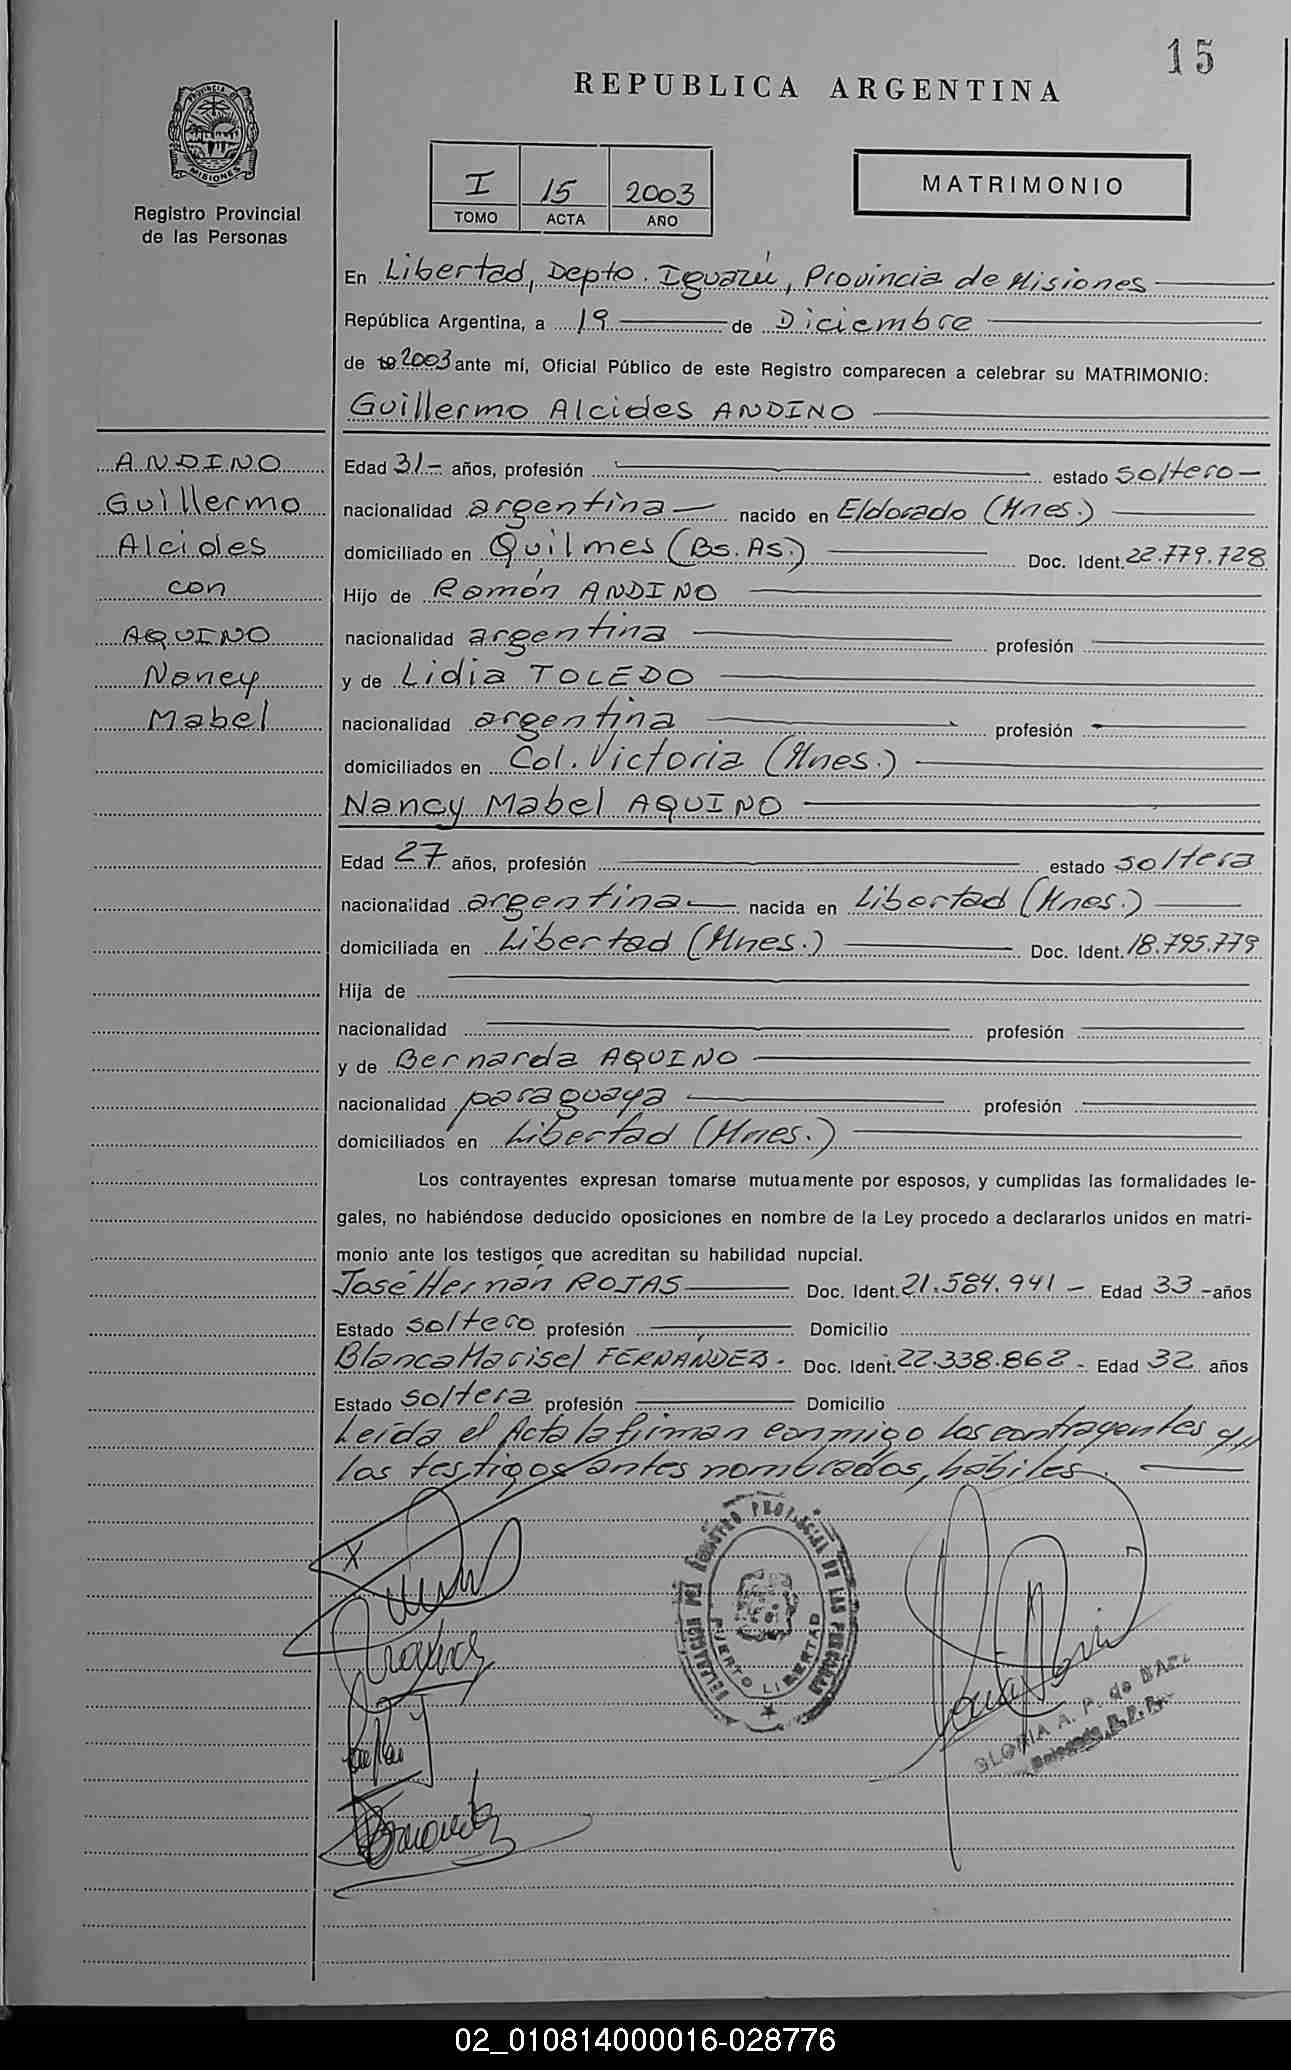 15
REPUBLICA ARGENTINA
PROVINCIA DE
MISIONES
Registro Provincial
de las Personas
I 15 2003
TOMO ACTA AÑO
MATRIMONIO
En Libertad, Depto. Iguazú, Provincia de Misiones
República Argentina, a 19 de Diciembre
de 19 2003 ante mí, Oficial Público de este Registro comparecen a celebrar su MATRIMONIO:
Guillermo Alcides ANDINO
ANDINO
Guillermo
Alcides
con
AQUINO
Nancy
Mabel
Edad 31- años, profesión estado soltero-
nacionalidad argentina nacido en Eldorado (Mnes.)
domiciliado en Quilmes (Bs. As.) Doc. Ident. 22.779.728
Hijo de Ramón ANDINO
nacionalidad argentina profesión
y de Lidia TOLEDO
nacionalidad argentina profesión
domiciliados en Col. Victoria (Mnes.)
Nancy Mabel AQUINO
Edad 27 años, profesión estado soltera
nacionalidad argentina nacida en Libertad (Mnes.)
domiciliada en Libertad (Mnes.) Doc. Ident. 18.795.779
Hija de
nacionalidad profesión
y de Bernarda AQUINO
nacionalidad paraguaya profesión
domiciliados en Libertad (Mnes.)
Los contrayentes expresan tomarse mutuamente por esposos, y cumplidas las formalidades le-
gales, no habiéndose deducido oposiciones en nombre de la Ley procedo a declararlos unidos en matri-
monio ante los testigos que acreditan su habilidad nupcial.
José Hernán ROJAS Doc. Ident. 21.584.941 - Edad 33 - años
Estado soltero profesión Domicilio
Blanca Marisel FERNANDEZ. Doc. Ident. 22.338.862 - Edad 32 años
Estado soltera profesión Domicilio
Leída el Acta la firman conmigo los contrayentes y
los testigos antes nombrados, hábiles.
DELEGACION DEL REGISTRO PROVINCIAL DE LAS PERSONAS
PUERTO LIBERTAD
GLORIA A. P. de BAEZ
Delegada R.P.P.
02_010814000016-028776